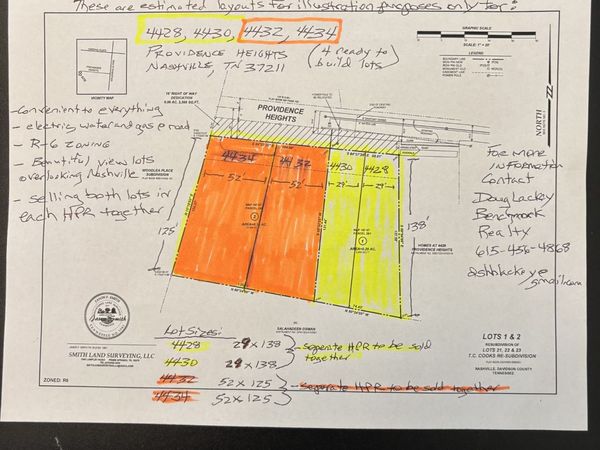 These are estimated layouts for illustration purposes only for:
4428, 4430, 4432, 4434
PROVIDENCE HEIGHTS
NASHVILLE, TN 37211
(4 ready to
build lots)
GRAPHIC SCALE
LEGEND
VICINITY MAP
PROVIDENCE
HEIGHTS
NORTH
-Convenient to everything
- electric, water and gas @ road
- R-6 ZONING
- Beautiful view lots
overlooking Nashville
- selling both lots in
each HPR together
WOODLEA PLACE
SUBDIVISION
4434
4432
4430
4428
52'
52'
29'
29'
125'
138'
HOMES AT 4426
PROVIDENCE HEIGHTS
For more
information
Contact
Doug Lackey
Benchmark
Realty
615-456-4868
SALAHADEEN OSMAN
Lot Sizes:
4428 29 x 138
4430 29 x 138
- seperate HPR to be sold
together
4432 52 x 125
4434 52 x 125
- seperate HPR to be sold together
SMITH LAND SURVEYING, LLC
ZONED: R6
LOTS 1 & 2
RESUBDIVISION OF
LOTS 21, 22 & 23
T.C. COOKS RE-SUBDIVISION
NASHVILLE, DAVIDSON COUNTY
TENNESSEE